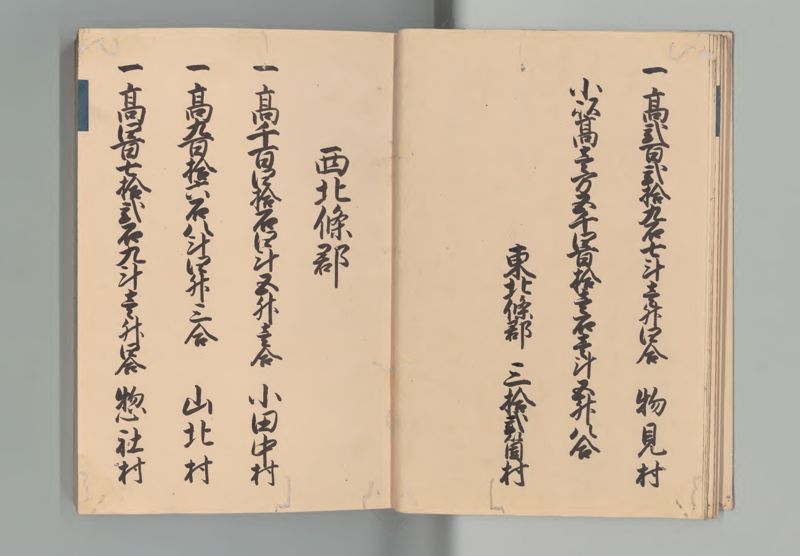 一 高弐百弐拾九石七斗壱升四合 物見村
小以高壱万五千四百拾壱石壱斗五升八合
東北條郡 三拾弐箇村
西北條郡
一 高千百四拾石四斗五升壱合 小田中村
一 高九百拾六石八斗四升三合 山北村
一 高四百七拾弐石九斗壱升四合 惣社村